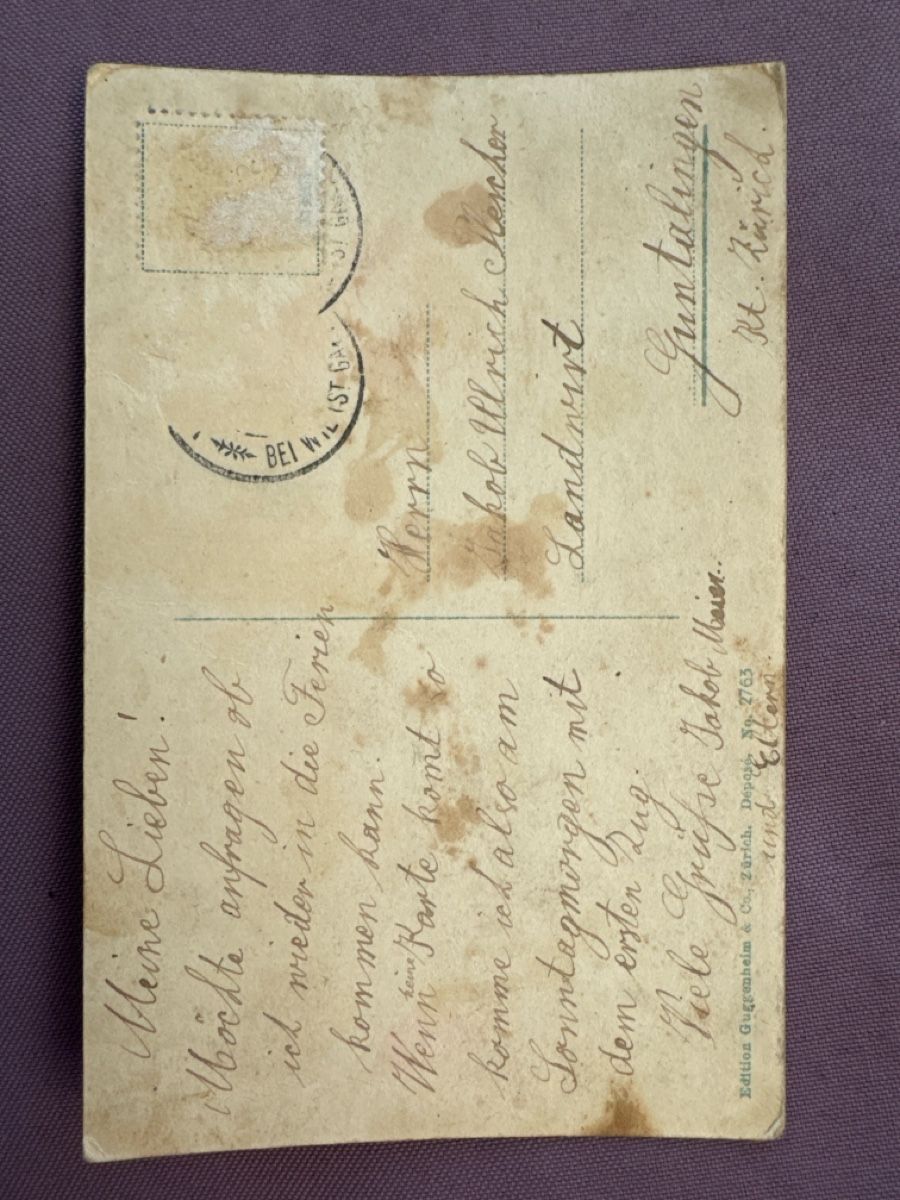 Meine Lieben!
Möchte anfragen ob
ich wieder in die Ferien
kommen kann.
Wenn keine Karte komt so
komme ich also am
Sonntagmorgen mit
dem ersten Zug.
Viele Grüsse Jakob Meier.
und Eltern
Edition Guggenheim & Co., Zürich. Depose. No. 2763
BEI WIL (ST GA
ST GA
Herrn
Jakob Ullrich
Landwirt
Guntalingen
Kt. Zürich.